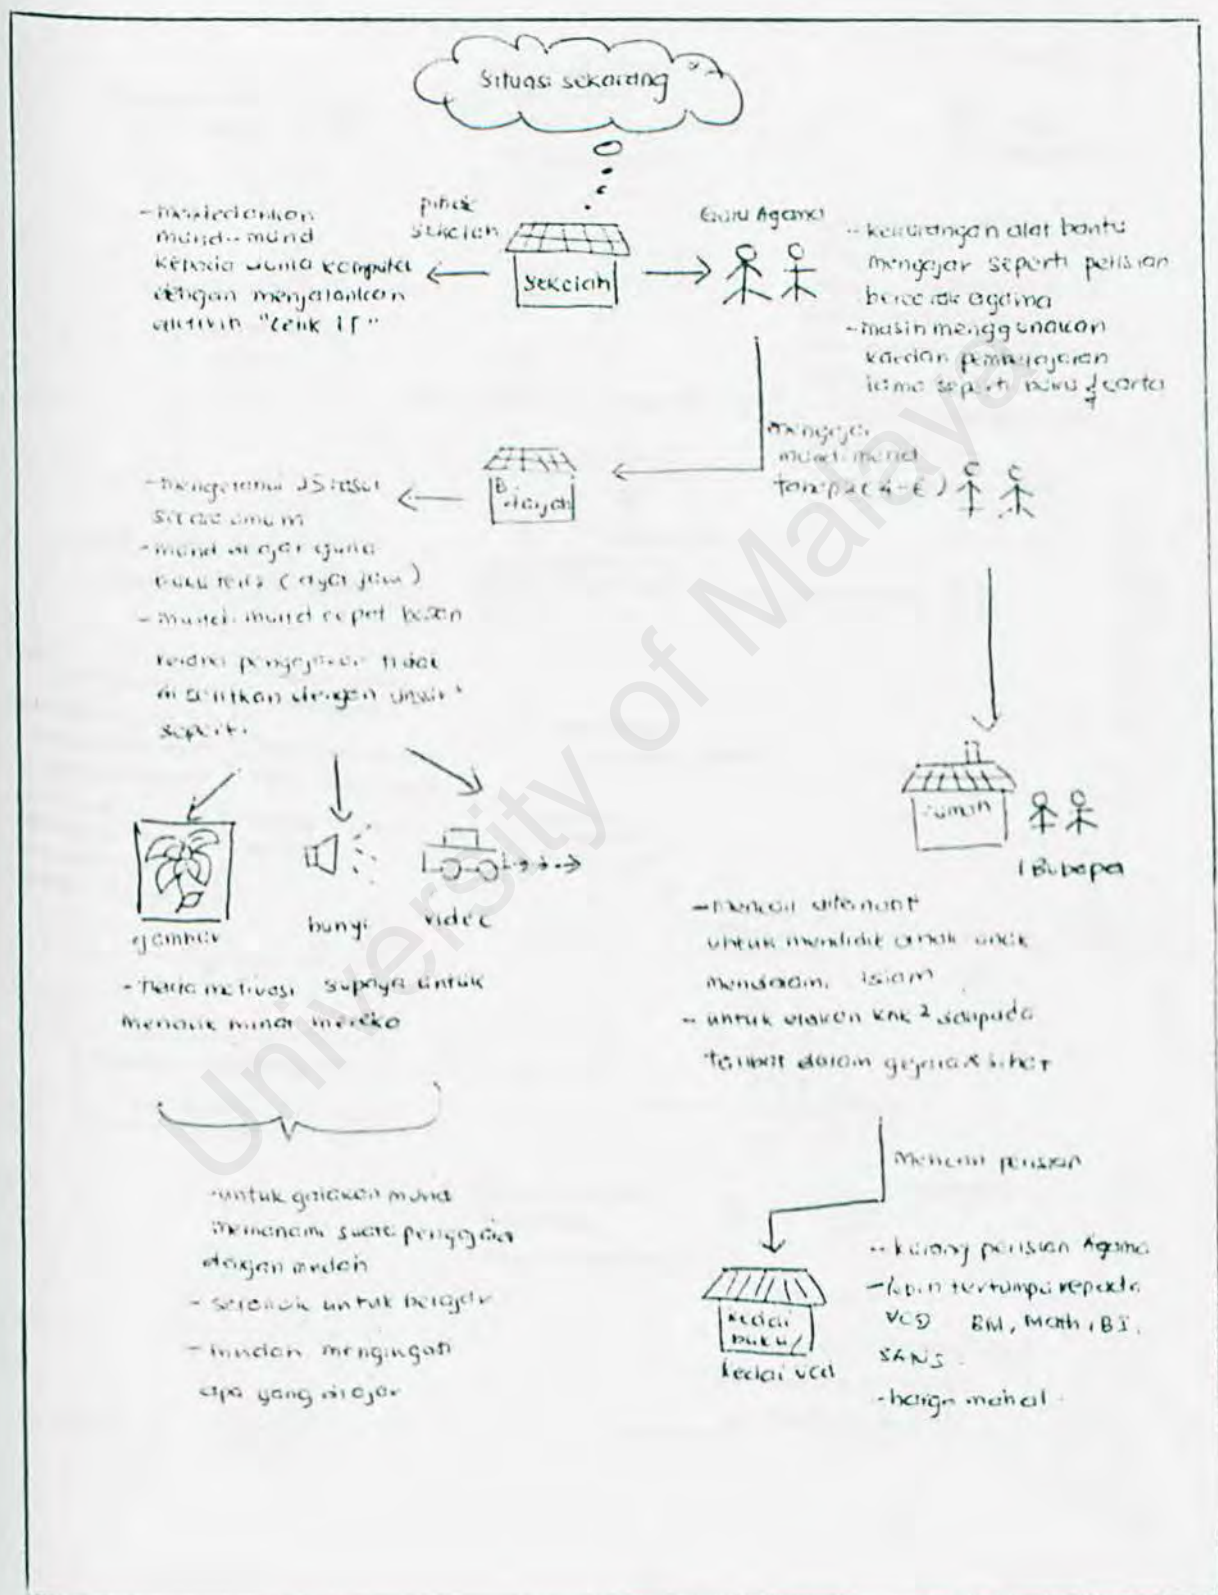 Situasi sekarang
pihak
sekolah
Sekolah
Guru Agama
murid-murid
kepada dunia komputer
dengan menjalankan
aktiviti "Celik IT"
- kekurangan alat bantu
mengajar seperti perisian
bercorak agama
- masih menggunakan
kaedah pembelajaran
lama seperti buku & carta
mengajar
murid-murid
B.
- mengetahui
- murid di ajar guna
buku teks
- murid-murid cepat bosan
kerana pengajaran tidak
di selitkan dengan unsur²
seperti
gambar
bunyi
video
- tiada motivasi supaya untuk
menarik minat mereka
- untuk galakan murid
memahami suatu pengajaran
dengan mudah
- seronok untuk belajar
- mudah mengingati
apa yang diajar
rumah
Ibubapa
- mencari alternatif
untuk mendidik anak-anak
mendalami Islam
- untuk elakan knk² daripada
terlibat dalam gejala
Mencari perisian
kedai
buku/
kedai vcd
- kurang perisian Agama
- lebih tertumpu kepada
VCD BM, Math, BI,
SANS.
- harga mahal
University of Malaya